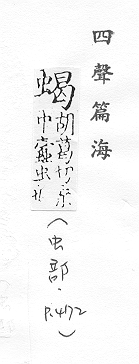 四聲篇海
蝎
胡葛切桒
中蠹虫也
(虫部.
P.472)